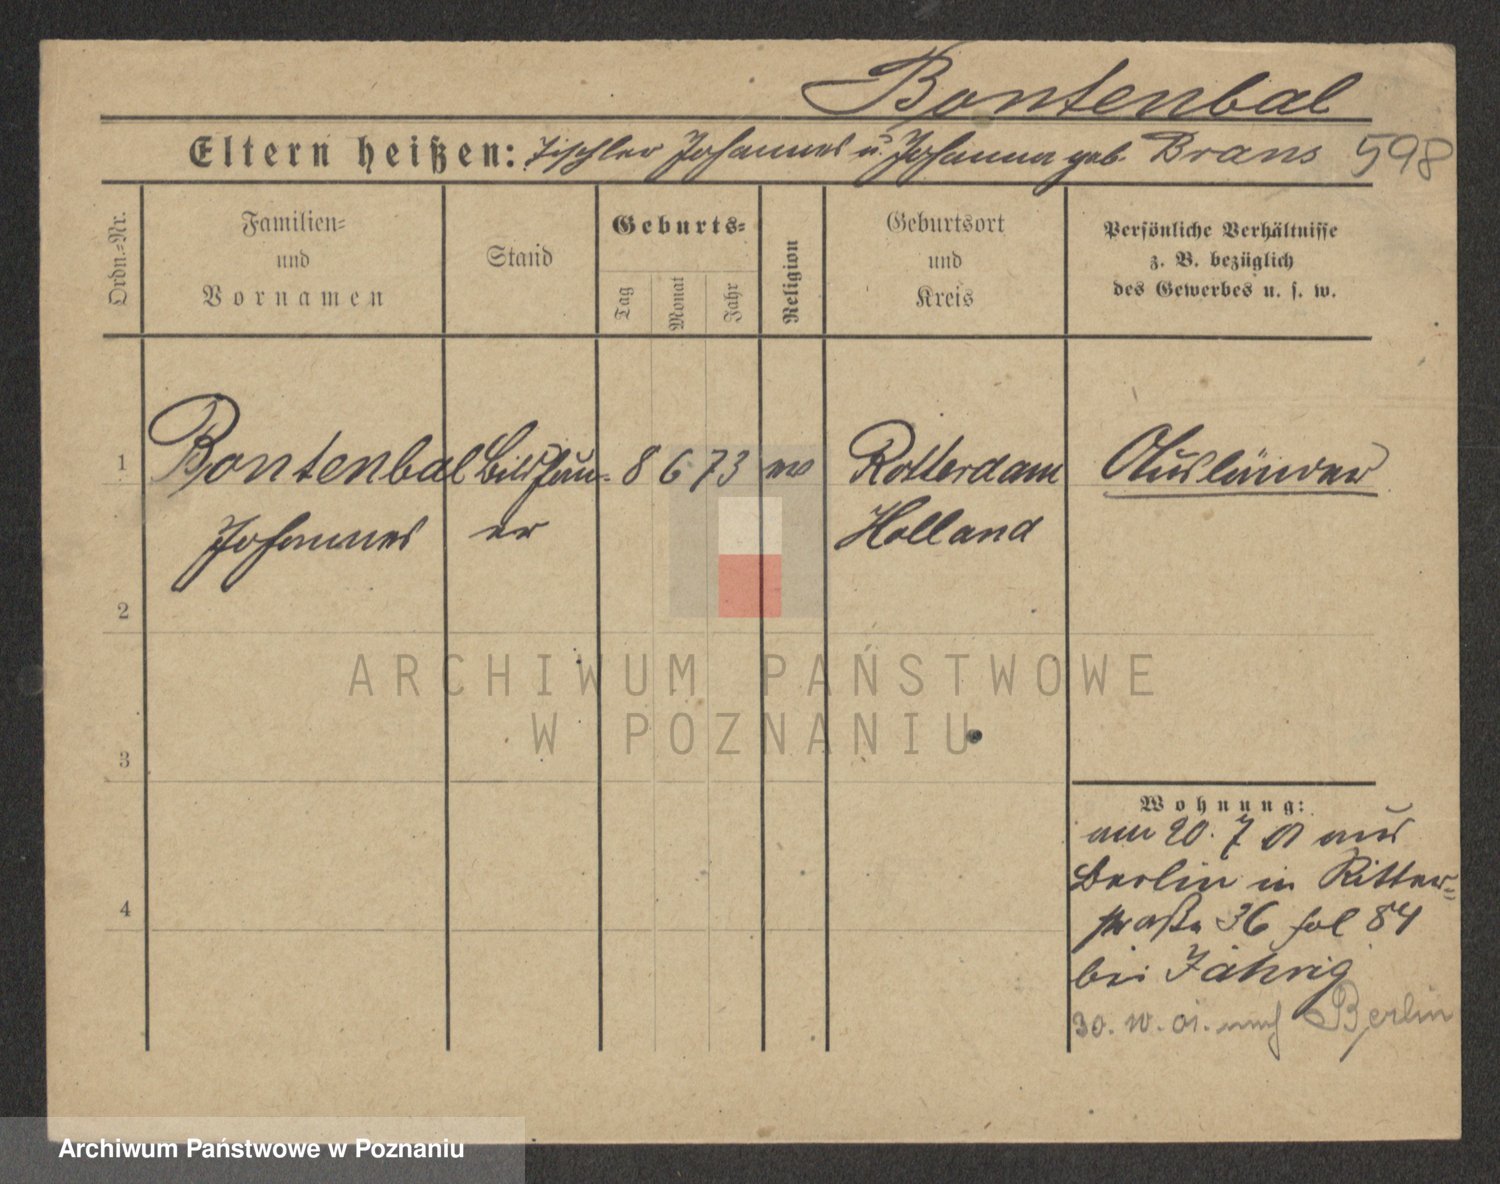 Bontenbal
Eltern heißen: Tischler Johannes u. Johanna geb. Brans 598
Ordn.=Nr.
Familien=
und
Vornamen
Stand
Geburts=
Tag
Monat
Jahr
Religion
Geburtsort
und
Kreis
Persönliche Verhältnisse
z. B. bezüglich
des Gewerbes u. s. w.
1 Bontenbal Bildhau= 8 6 73 Rotterdam Ausländer
Johannes er Holland
2
ARCHIWUM PAŃSTWOWE
W POZNANIU
3
Wohnung:
am 20. 7 01 aus
Berlin in Ritter=
straße 36 fol 84
bei Jähnig
30. 10. 01. nach Berlin
4
Archiwum Państwowe w Poznaniu